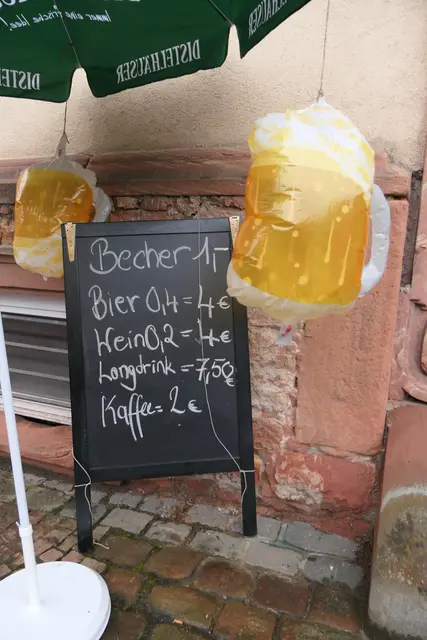 Immer eine frische Idee!
DISTELHÄUSER
DISTELHÄUSER
DISTELHÄUSER
Becher 1,-
Bier 0,4 = 4 €
Wein 0,2 = 4 €
Longdrink = 7,50 €
Kaffee = 2 €